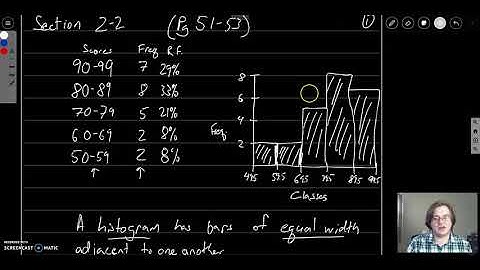 Section 2-2 (Pg 51-53) 1
Scores Freq R.F.
90-99 7 29%
80-89 8 33%
70-79 5 21%
60-69 2 8%
50-59 2 8%
8
6
4
2
Freq
49.5 59.5 69.5 79.5 89.5 99.5
Classes
A histogram has bars of equal width
adjacent to one another
RECORDED WITH
SCREENCAST MATIC